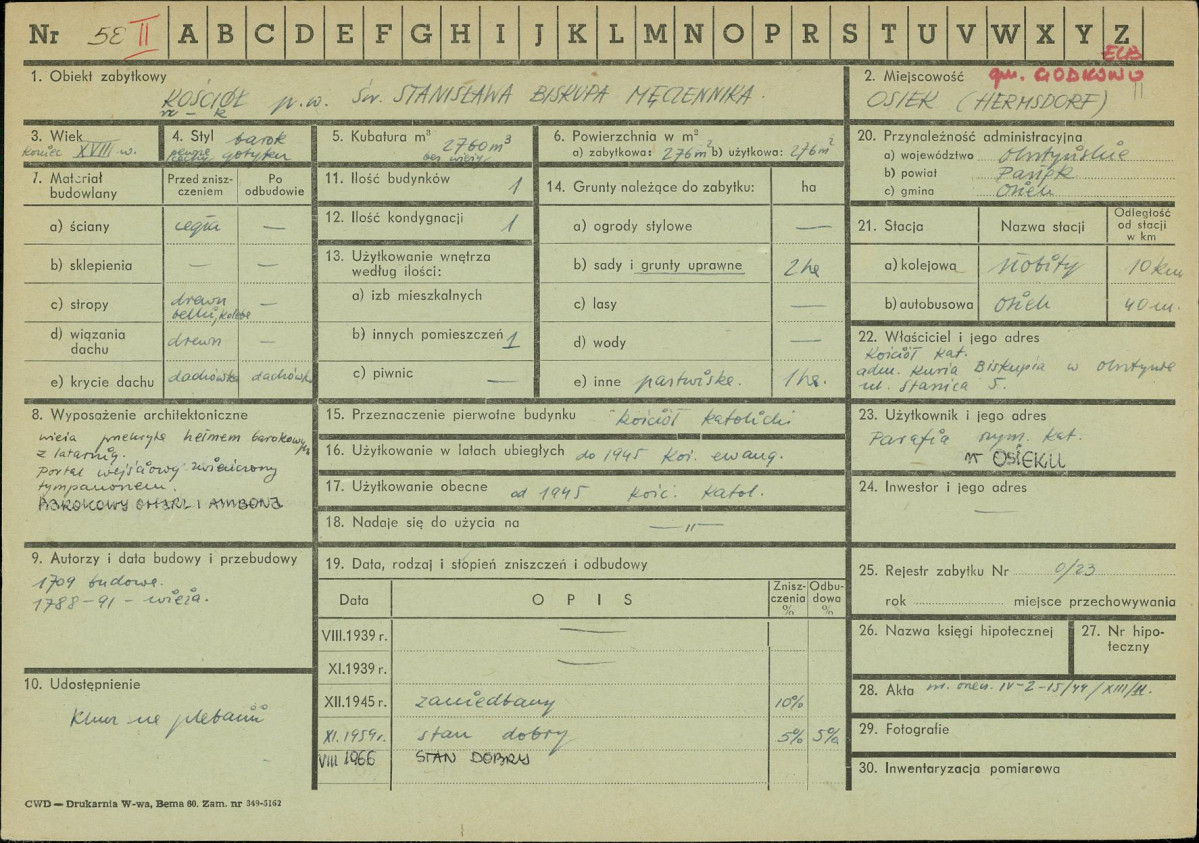 Nr 58 II A B C D E F G H I J K L M N O P R S T U V W X Y Z
ELB
1. Obiekt zabytkowy
KOŚCIÓŁ p.w. Św. STANISŁAWA BISKUPA MĘCZENNIKA
rz - k
2. Miejscowość gm. GODKOWO
OSIEK (HERMSDORF) II
3. Wiek
koniec XVIII w.
4. Styl barok
pewne cechy gotyku
5. Kubatura m³
2760 m³
bez wieży
6. Powierzchnia w m²
a) zabytkowa: 276 m² b) użytkowa: 276 m²
20. Przynależność administracyjna
a) województwo olsztyńskie
b) powiat Pasłęk
c) gmina Osiek
7. Materiał budowlany
Przed zniszczeniem
Po odbudowie
a) ściany cegła —
b) sklepienia — —
c) stropy drewn —
belki,
d) wiązania dachu drewn —
e) krycie dachu dachówka dachówka
11. Ilość budynków 1
12. Ilość kondygnacji 1
13. Użytkowanie wnętrza według ilości:
a) izb mieszkalnych
b) innych pomieszczeń 1
c) piwnic —
14. Grunty należące do zabytku: ha
a) ogrody stylowe —
b) sady i grunty uprawne 2 ha
c) lasy —
d) wody —
e) inne pastwiska. 1 ha.
21. Stacja Nazwa stacji Odległość od stacji w km
a) kolejowa Nobity 10 km
b) autobusowa Osiek 40 m.
22. Właściciel i jego adres
Kościół kat.
adm. Kuria Biskupia w Olsztynie
ul. Staszica 5.
8. Wyposażenie architektoniczne
wieża przekryta hełmem barokowym
z latarnią.
Portal wejściowy zwieńczony
tympanonem.
BAROKOWY OŁTARZ I AMBONA
15. Przeznaczenie pierwotne budynku Kościół katolicki
16. Użytkowanie w latach ubiegłych do 1945 Koś. ewang.
17. Użytkowanie obecne od 1945 Kośc. Katol.
18. Nadaje się do użycia na —"—
23. Użytkownik i jego adres
Parafia rzym. kat.
w OSIEKU
24. Inwestor i jego adres
—
9. Autorzy i data budowy i przebudowy
1709 budowa.
1788-91 - wieża.
19. Data, rodzaj i stopień zniszczeń i odbudowy
Data OPIS Zniszczenia % Odbudowa %
VIII.1939 r. —
XI.1939 r. —
XII.1945 r. zaniedbany 10%
XI.1959 r. stan dobry 5% 5%
VIII 1966 STAN DOBRY
25. Rejestr zabytku Nr 0/23
rok miejsce przechowywania
26. Nazwa księgi hipotecznej
27. Nr hipoteczny
10. Udostępnienie
Klucz na plebanii
28. Akta
29. Fotografie
30. Inwentaryzacja pomiarowa
CWD — Drukarnia W-wa, Bema 60. Zam. nr 349-5162